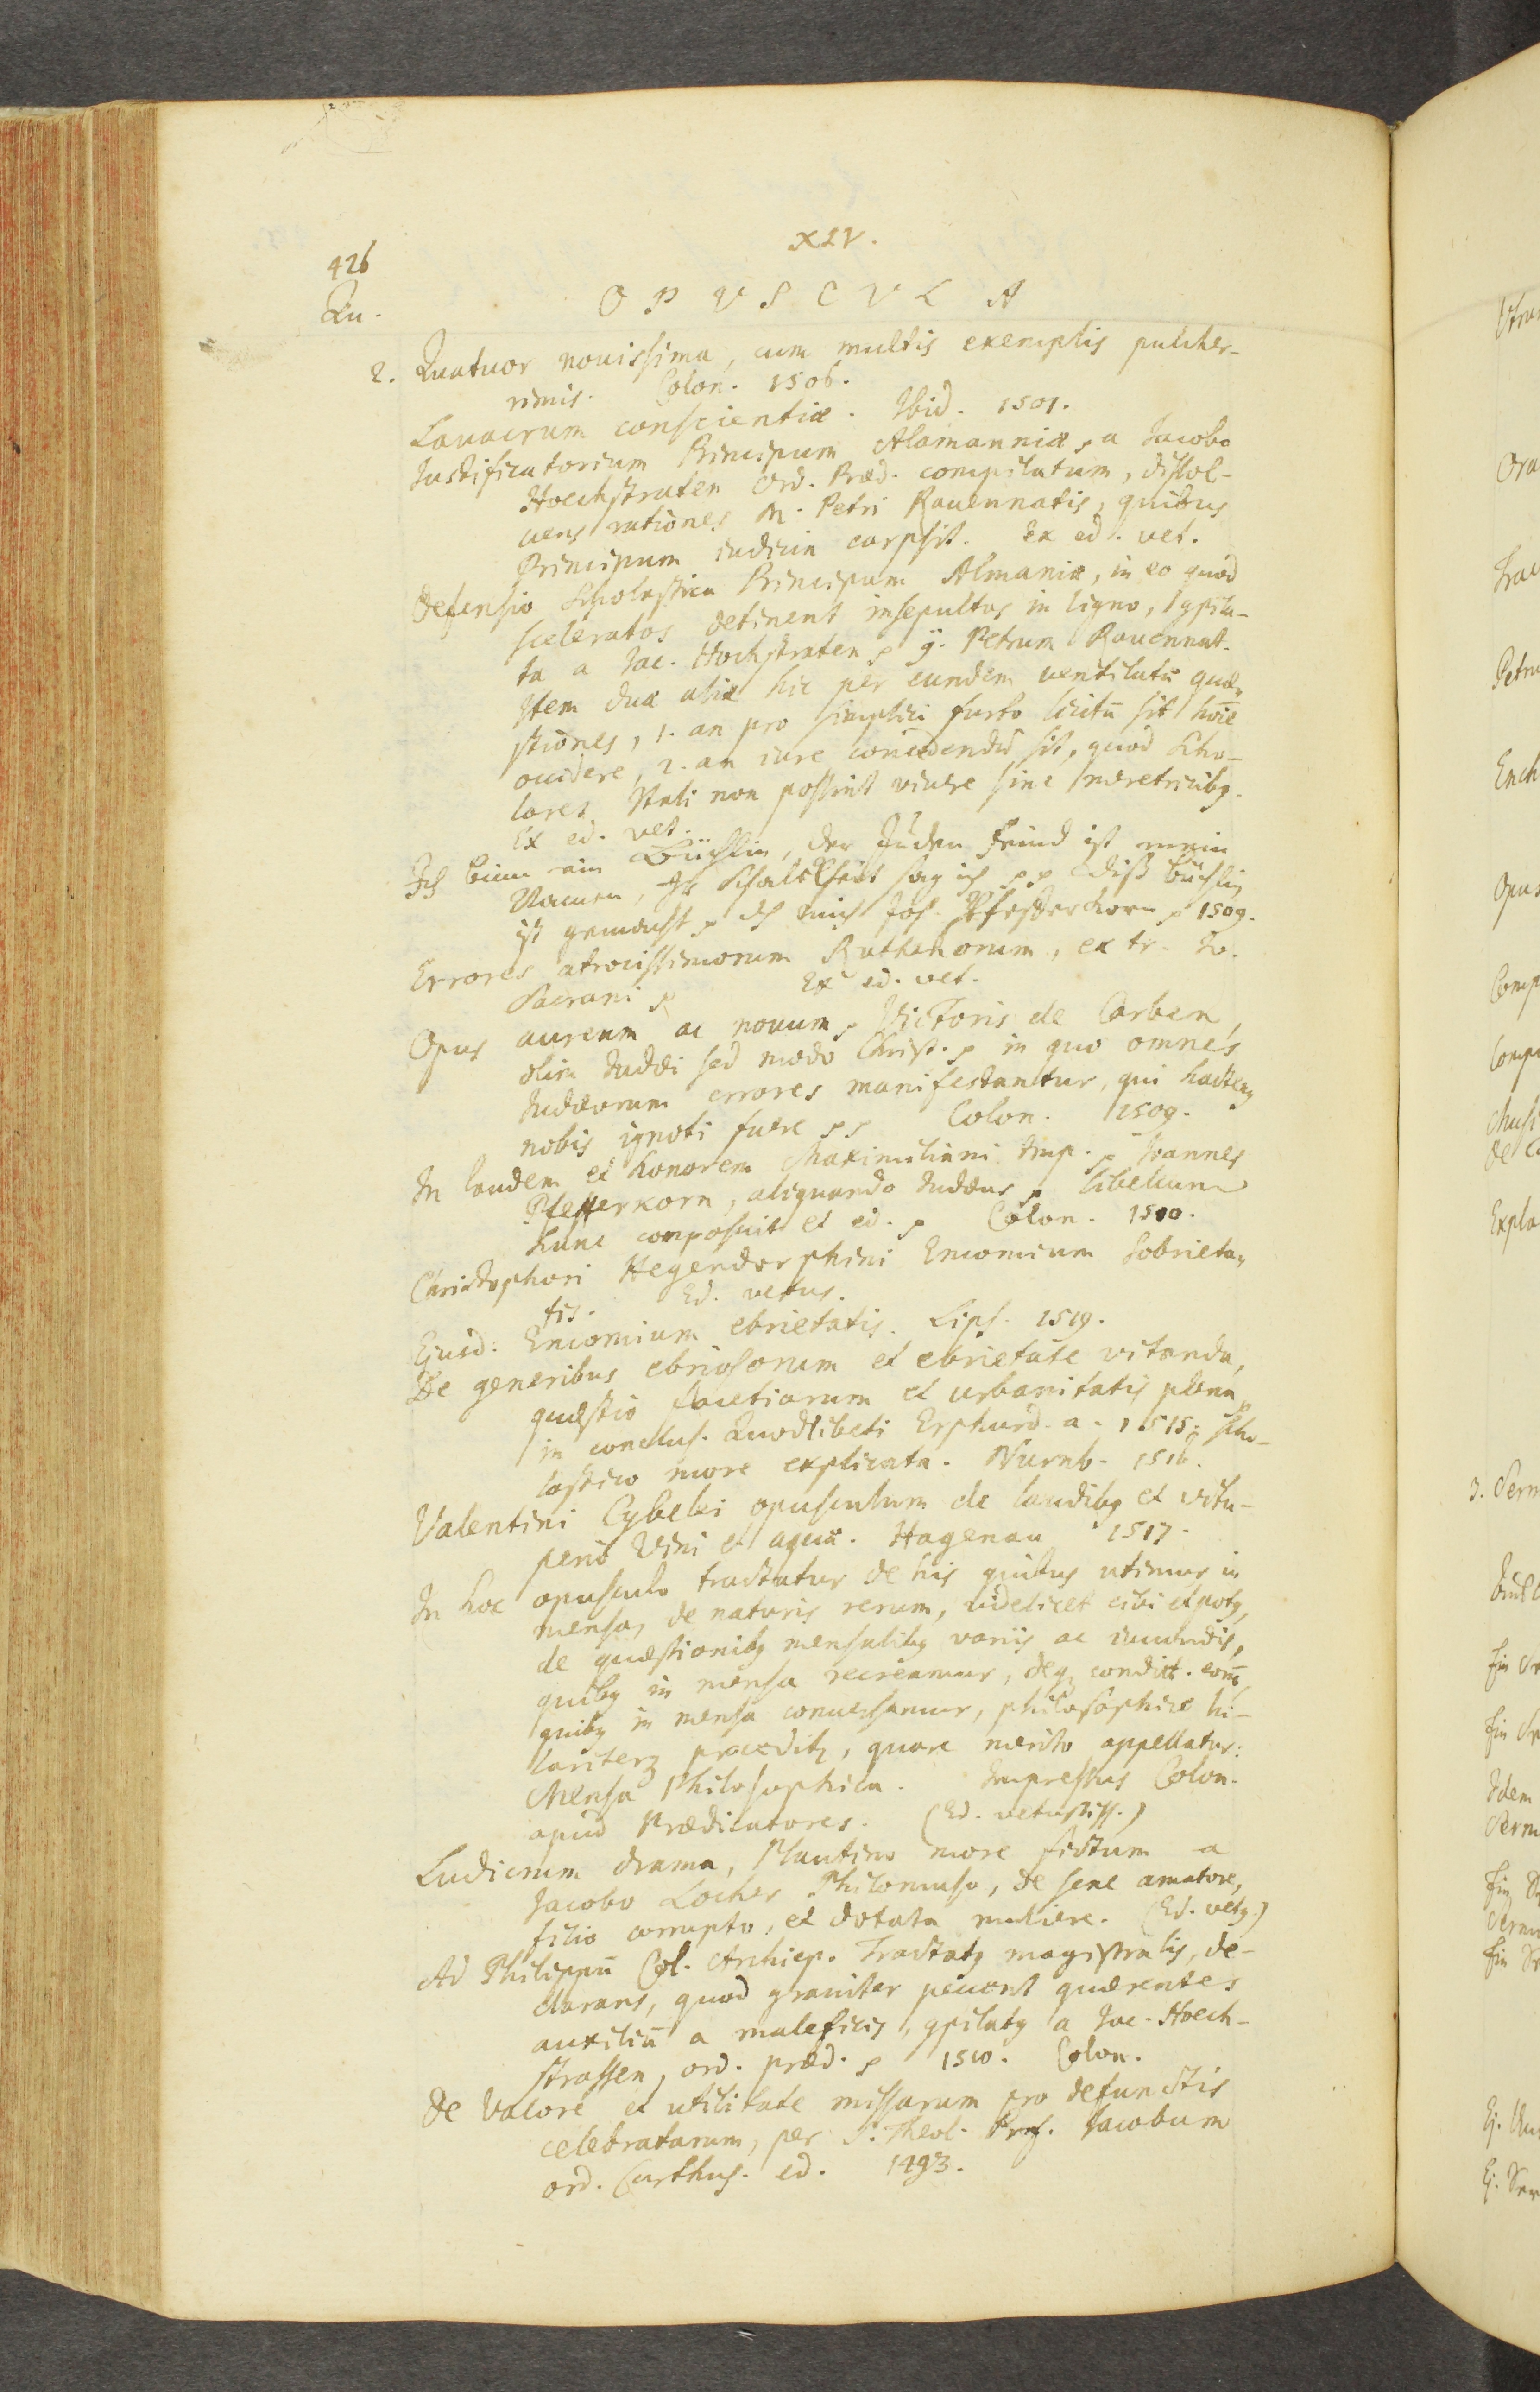 XIV.
426
Qu.
OPVSCVLA
2. Quatuor nouissima, cum multis exemplis pulcher-
rimis. Colon. 1506.
Lauacrum conscientiæ. Ibid. 1501.
Iustificatorium Principum Alamanniæ, a Iacobo
Hoechstraten Ord. Præd. compilatum, dissol-
uens rationes M. Petri Rauennatis, quibus
Principum iudicia carpsit. Ex ed. vet.
Defensio Scholastica Principum Almaniæ, in eo quod
sceleratos detinent insepultos in ligno, 9pila-
ta a Iac. Hochstraten 9. Petrum Rauennat.
Item duæ aliæ hic per eundem ventilatæ quæ-
stiones, 1. an pro simplici furto licitū sit hoīe
occidere, 2. an iure concedendū sit, quod Scho-
lares Itali non possint viuere sine meretricibq.
Ex ed. vet.
Ich binn ain Büchlin, der Juden feind ist mein
Namen, Ir Schalckheit sag ich Diß büchlin
ist gemacht Joh. Pfefferkorn 1509.
Errores atrocissimorum Ruthenorum, ex tr. Io.
Sacrani Ex ed. vet.
Opus aureum ac nouum Victoris de Carben,
olim Iudæi sed modo Christ. in quo omnes
Iudæorum errores manifestantur, qui hactenq
nobis ignoti fuere Colon. 1509.
In laudem et honorem Maximiliani Imp. Ioannes
Pfefferkorn, aliquando Iudæus libellum
hunc composuit et ed. Colon. 1510.
Christophori Hegendorphini Encomium Sobrieta-
tis. Ed. vetus.
Ejusd. Encomium ebrietatis. Lips. 1519.
De generibus ebriosorum et ebrietate vitanda,
quæstio facetiarum et urbanitatis plena,
in conclus. Quodlibeti Erphurd. a. 1515. scho-
lastico more explicata. Nurnb. 1516.
Valentini Cybelei opusculum de laudibq et vitu-
perio Vini et aquæ. Hagenau 1517.
In hoc opusculo tractatur de his quibus utimur in
mensa, de naturis rerum, videlicet cibi et potq,
de quæstionibq mensalibq variis ac iucundis,
quibq in mensa recreamur, deq condict. eorū,
quibq in mensa conuersamur, philosophice hi-
lariterq proceditq, quare merito appellatur:
Mensa Philosophica. Impressus Colon.
apud Prædicatores. (Ed. vetustiss.)
Ludicrum drama, Plautino more fictum a
Jacobo Locher Philomuso, de sene amatore,
filio corrupto, et dotata muliere. (Ed. vetq.)
Ad Philippū Col. Archiep. Tractatq magistralis, de-
clarans, quod grauiter peccent quærentes
auxiliū a maleficis, 9pilatq a Iac. Hoech-
strassen, ord. præd. 1510. Colon.
De Valore et utilitate missarum pro defunctis
celebratarum, per S. Theol. Prof. Iacobum
ord. Carthus. ed. 1493.